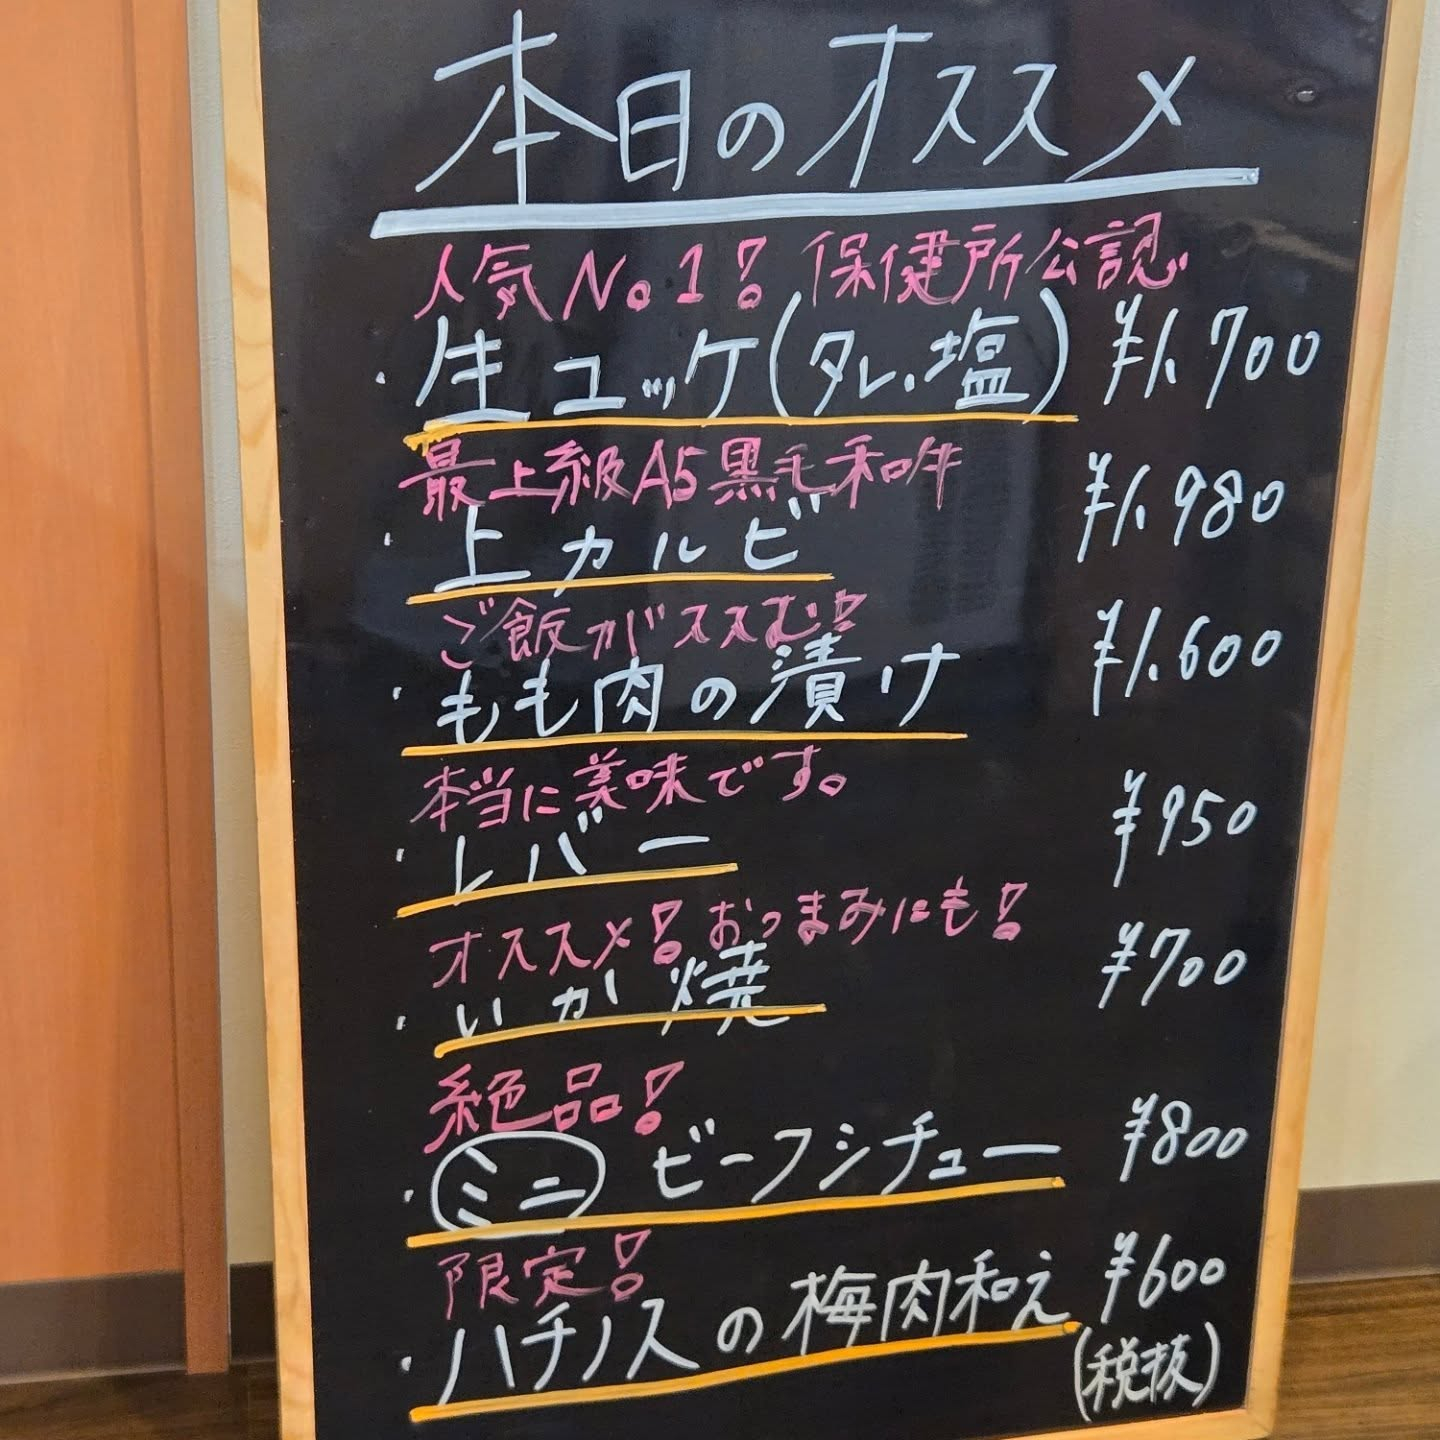 本日のオススメ
人気No.1! 保健所公認
・生ユッケ(タレ、塩) ¥1,700
最上級A5黒毛和牛
・上カルビ ¥1,980
ご飯がススむ!
・もも肉の漬け ¥1,600
本当に美味です。
・レバー ¥950
オススメ!おつまみにも!
・いか焼 ¥700
絶品!
・ミニ ビーフシチュー ¥800
限定!
・ハチノスの梅肉和え ¥600
(税抜)